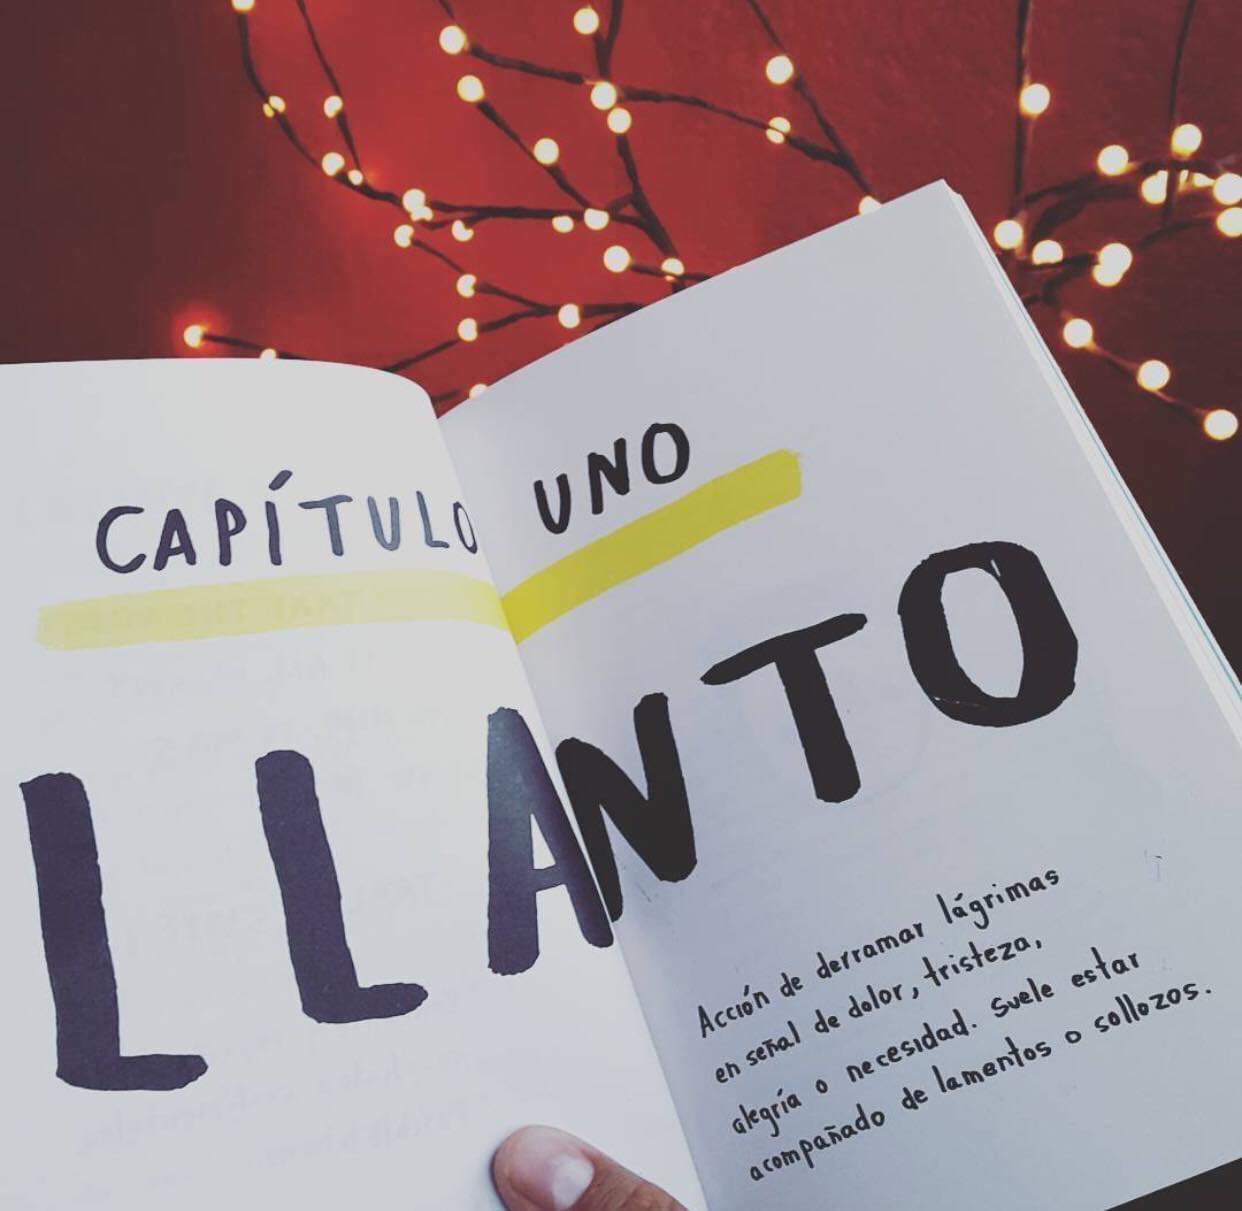 CAPÍTULO UNO
LLANTO
Acción de derramar lágrimas
en señal de dolor, tristeza,
alegría o necesidad. Suele estar
acompañado de lamentos o sollozos.